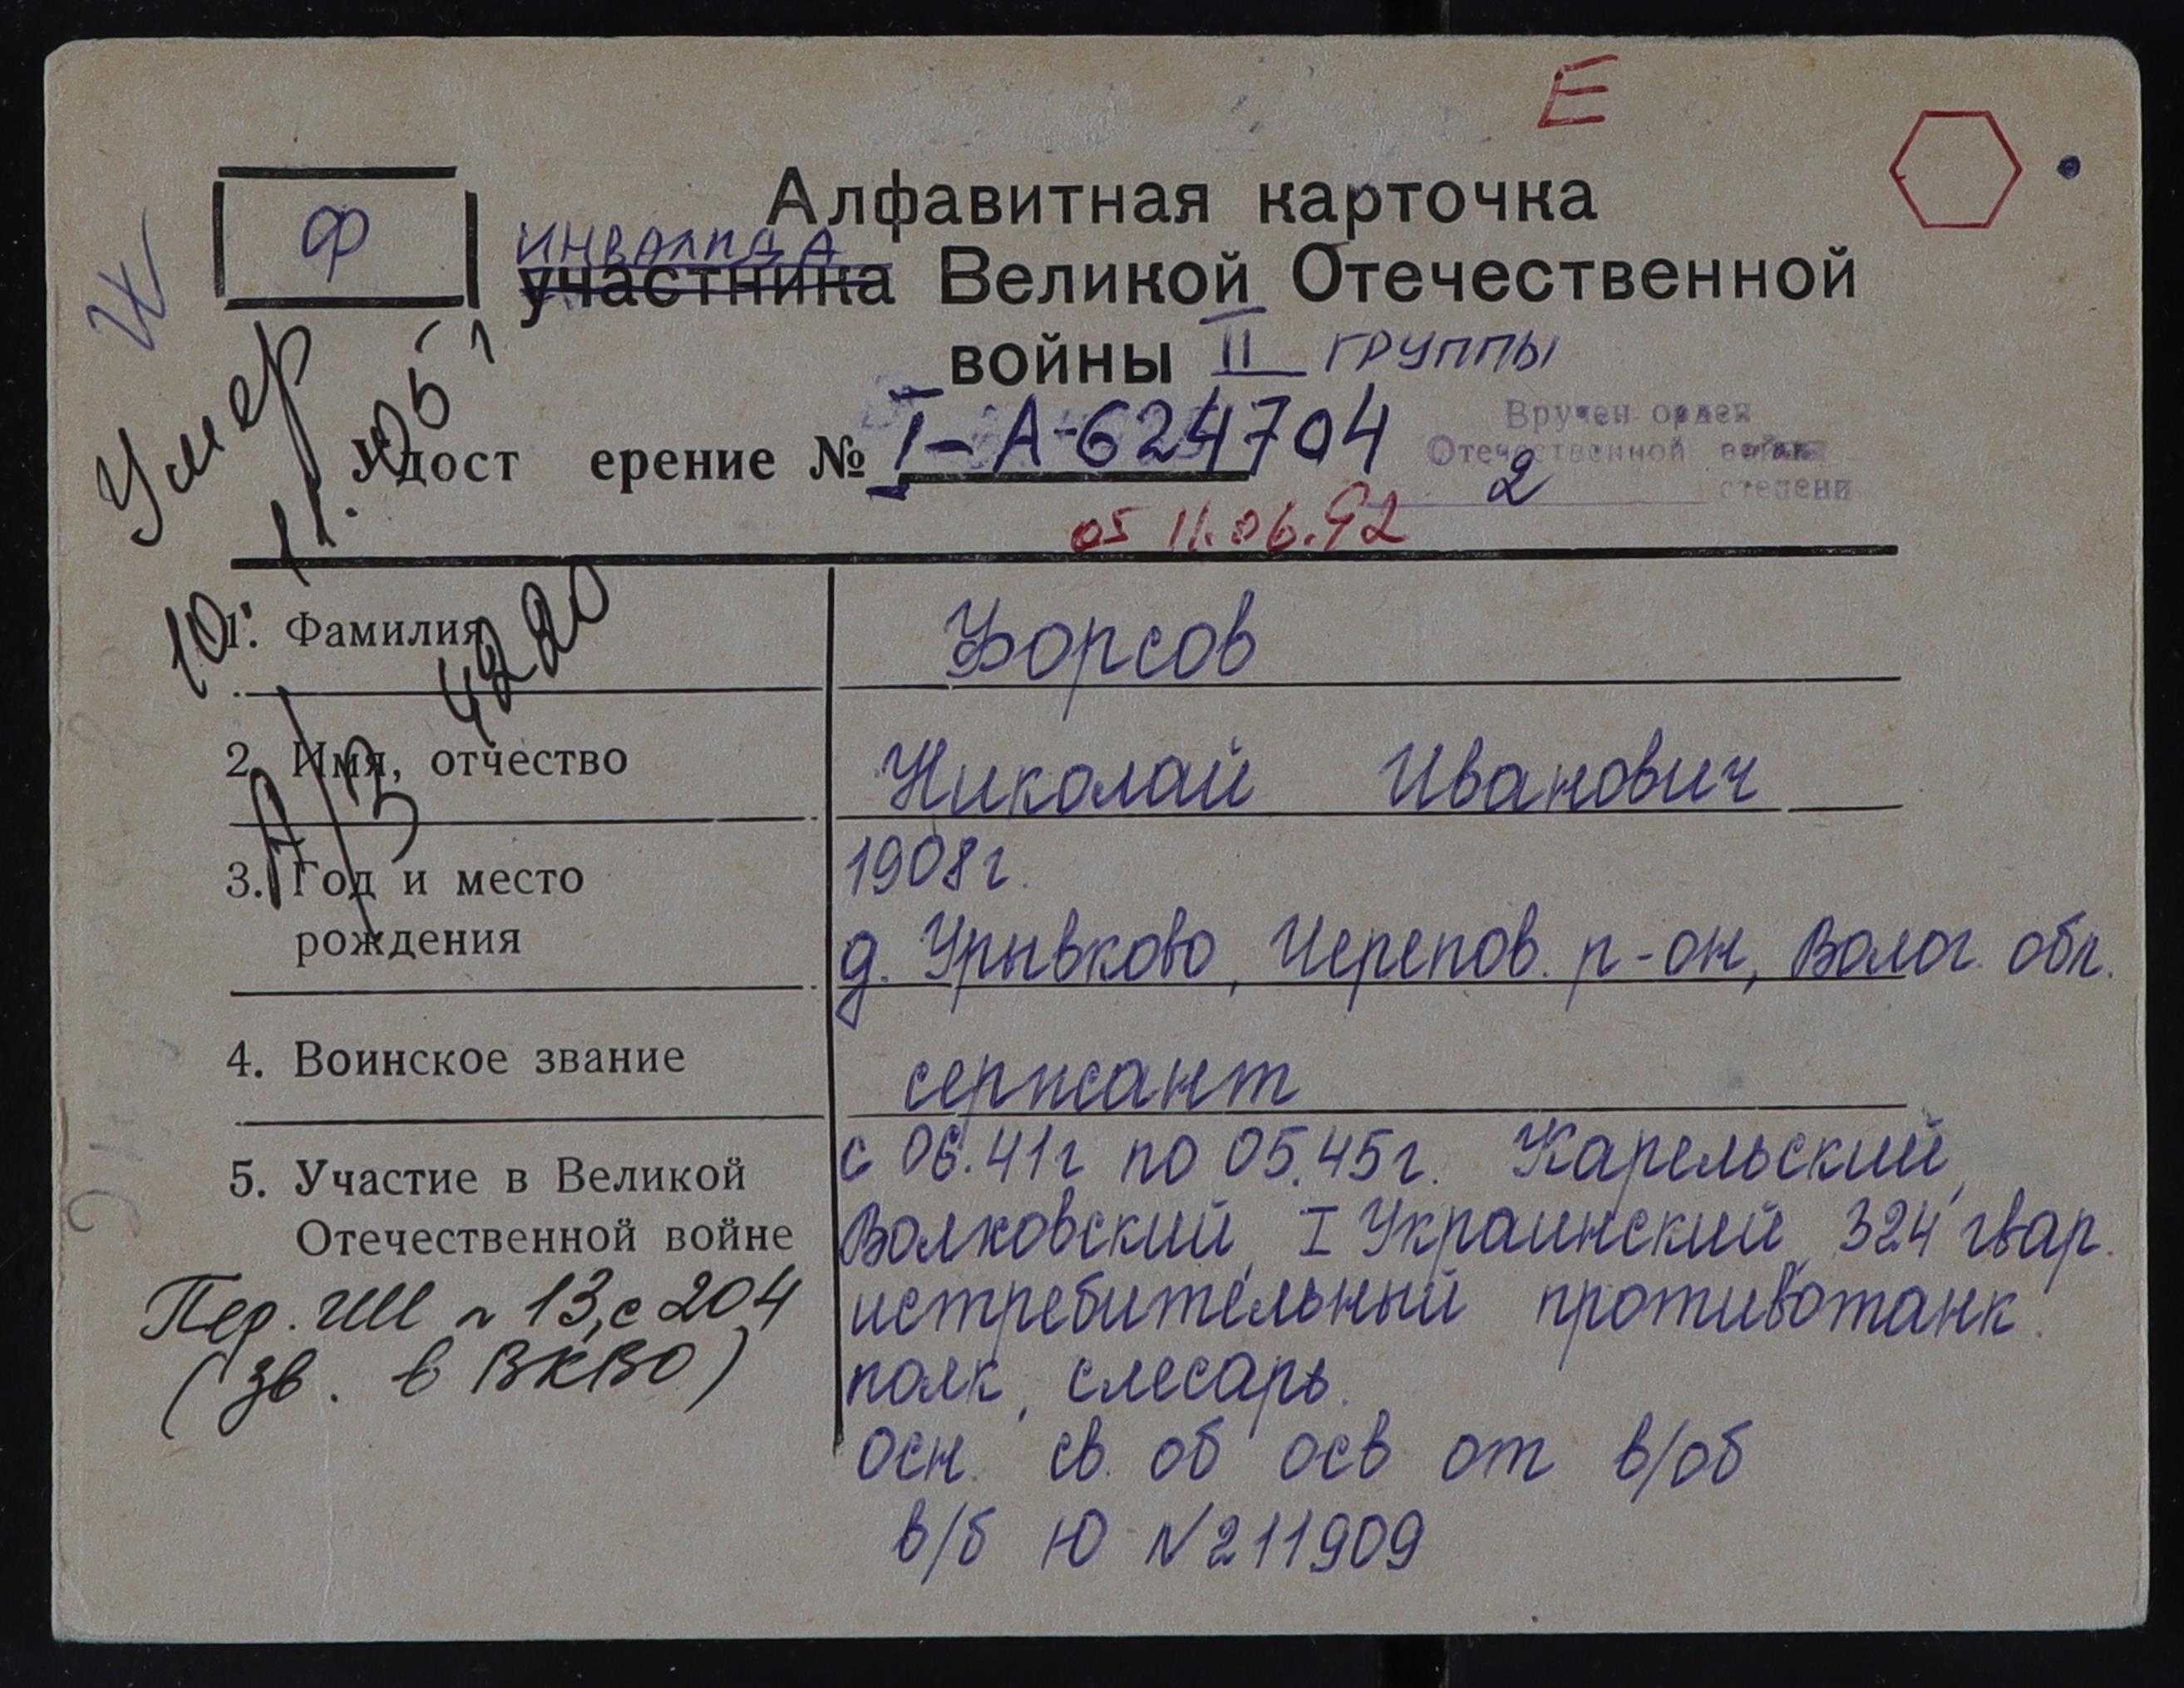 Е
Ф
Алфавитная карточка
инвалида
участника Великой Отечественной
войны II группы
Удост ерение № I-А-624704
Вручен орден
Отечественной войны
2 степени
от 11.06.92
Умер
10. 11. 95 г
А/З 4220
1. Фамилия Форсов
2. Имя, отчество Николай Иванович
3. Год и место 1908г.
рождения д. Урывково, Черепов. р-он, Волог. обл.
4. Воинское звание сержант
5. Участие в Великой с 06.41г по 05.45г. Карельский,
Отечественной войне Волховский, I Украинский, 324 гвар.
истребительный противотанк.
полк, слесарь.
Осн. св. об осв от в/об
в/б Ю N211909
Пер. ГШ № 13, с 204
(зв. в ВКВО)